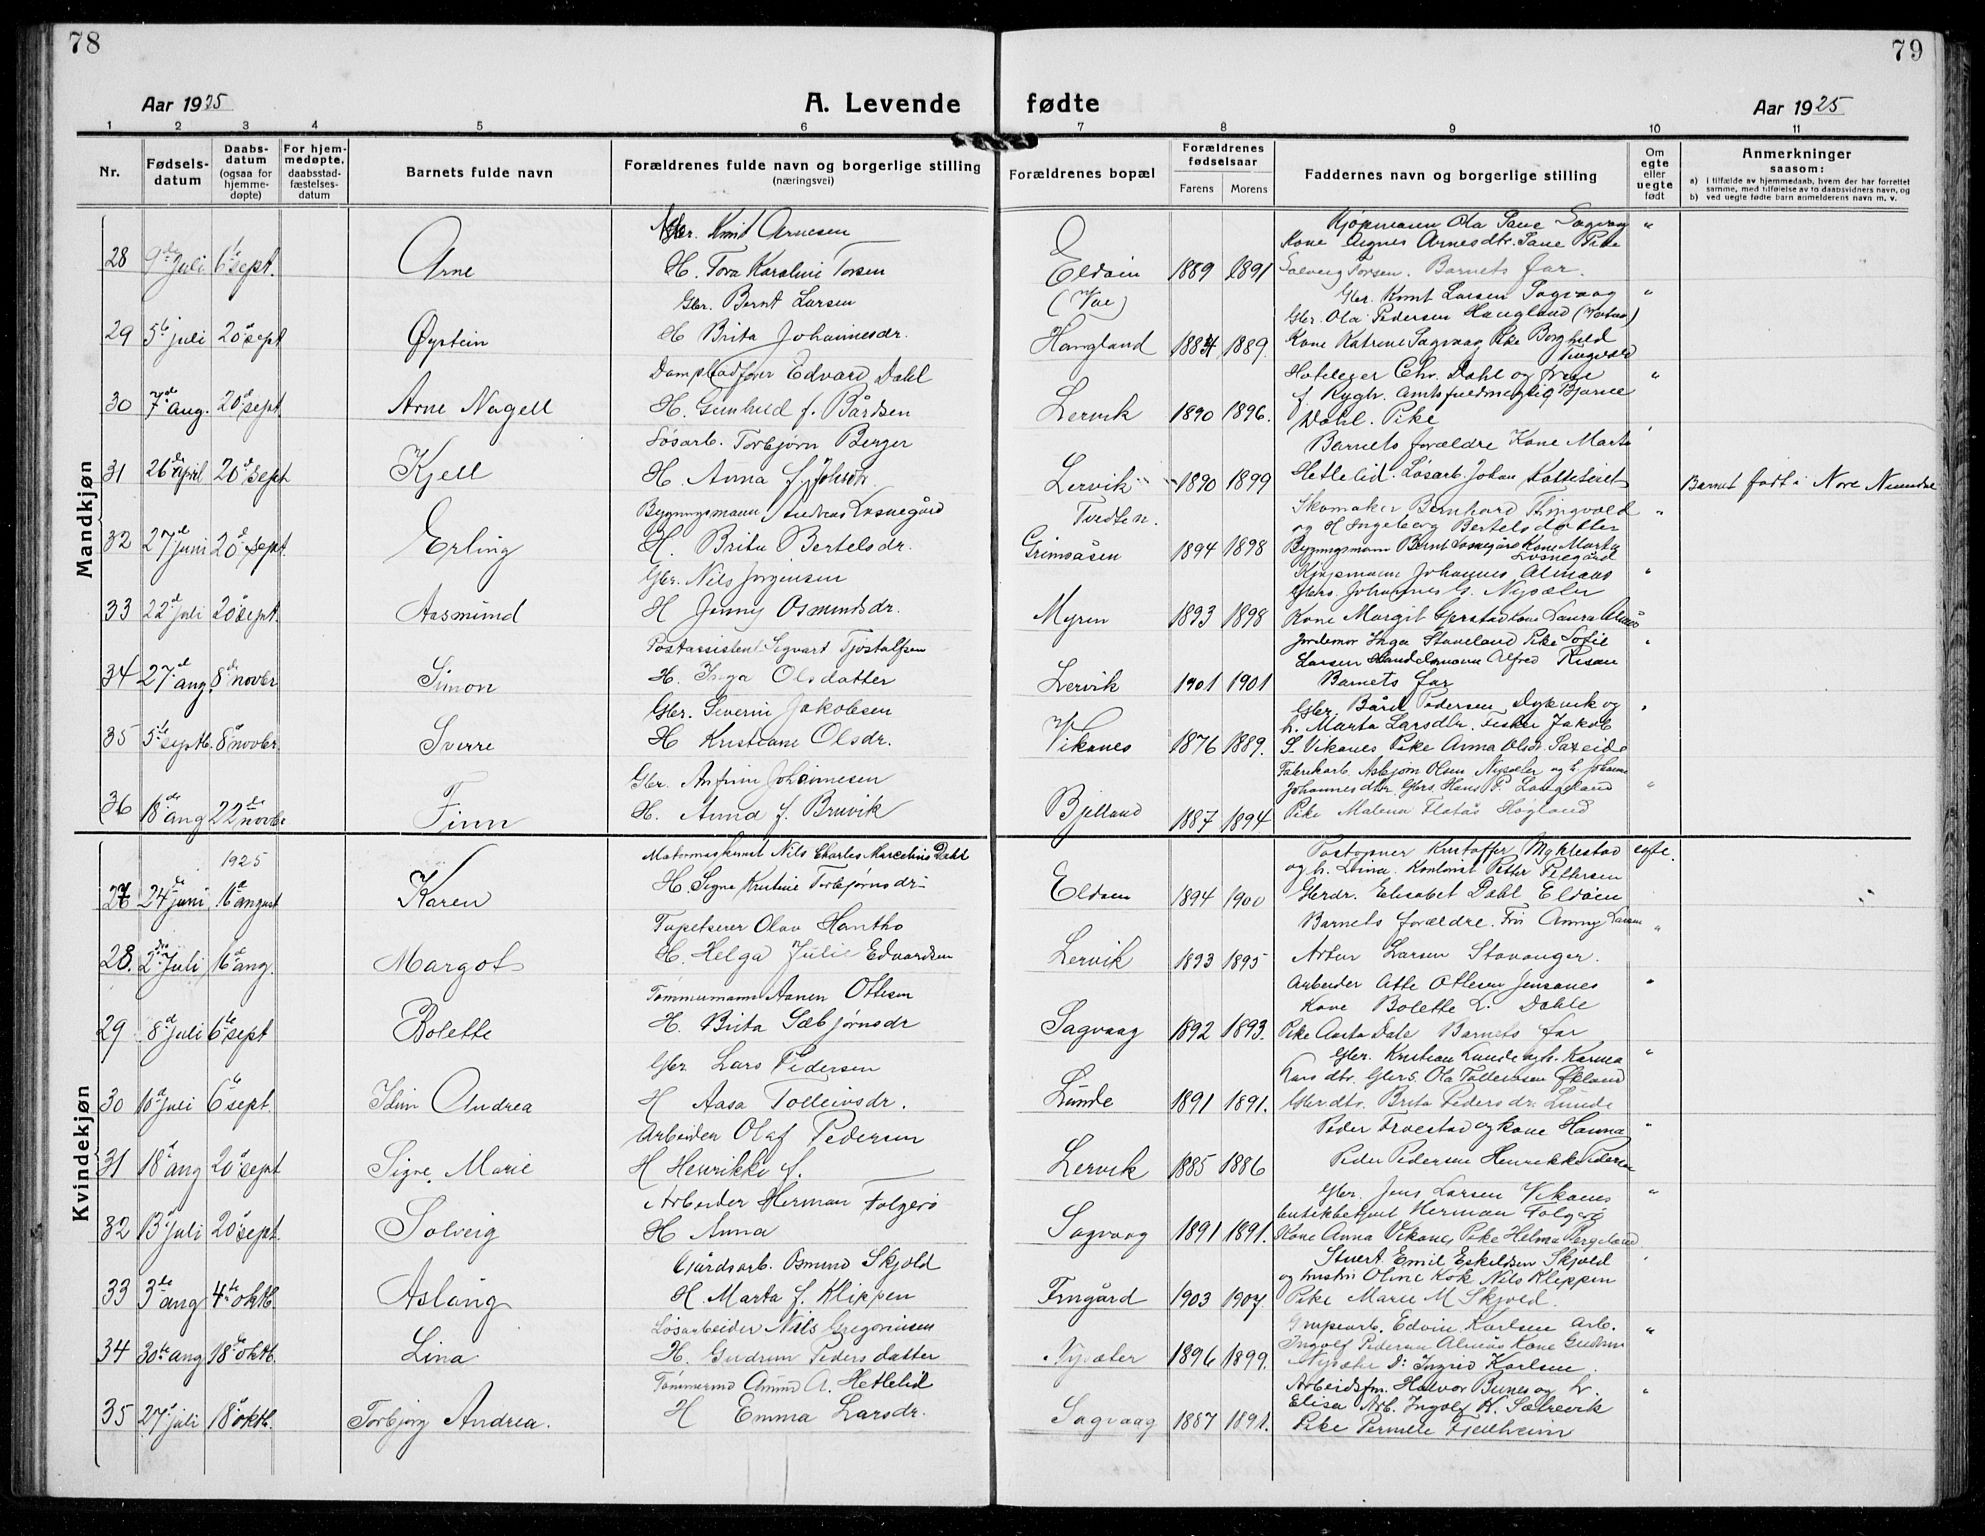 78
79
Aar 1925
A. Levende
fødte
Aar 1925
1 2 3 4 5 6 7 8 9 10 11
Nr.
Fødselsdatum
Daabsdatum (ogsaa for hjemmedøpte)
For hjemmedøpte. daabsstadfæstelsesdatum
Barnets fulde navn
Forældrenes fulde navn og borgerlige stilling (næringsvei)
Forældrenes bopæl
Forældrenes fødselsaar
Farens Morens
Faddernes navn og borgerlige stilling
Om egte eller uegte født
Anmerkninger saasom:
a) i tilfælde av hjemmedaab, hvem der har forrettet samme, med tilføielse av to daabsvidners navn, og
b) ved uegte fødte barn anmelderens navn m. v.
Mandkjøn
28 9de Juli 6te sept. Arne
Gbr. Knut Arnesen
H. Tora Karoline Torsen
Eldøin (Vae) 1889 1891
Kjøpmann Ola Sagvaag
Kone Agnes Arnesdtr. Pike
Solveig Torsen. Barnets far.
29 5te juli 20de sept Øystein
Gbr. Bernt Larsen
H Brita Johannesdr.
Haugland 1884 1889.
Gbr. Knut Larsen Sagvaag
Gbr. Ola Pedersen Haugland
Kone Katrine Sagvaag Pike Borghild
30 7de aug. 20de sept Arne Nagell
Dampbadfører Edvard Dahl
H. Gunhild f. Bårdsen
Lervik 1890 1896.
Hoteleger Chr. Dahl og frue
f. Rygh. Amtsfuldmegtig Bjarne
Dahl. Pike
31 26de april 20de sept Kjell
Løsarb. Torbjørn Berger
H. Anna f. Johsdr.
Lervik 1890 1899
Barnets forældre Kone Marta
Hetlelid. Løsarb. Johan
Barnet født i Nore
32 27de juni 20de sept. Erling
Bygningsmann Andreas Losnegård
H. Brita Bertelsdr.
Tvedten.
Grimsåsen 1894 1898
Skomaker Bernhard Tingvold
og H Ingeborg Bertelsdatter
Bygningsmann Bernt Losnegård Kone Marta
Losnegård
33 22de juli 20de sept. Aasmund
Gbr. Nils Jørgensen
H Jenny Osmundsdr.
Myren 1893 1898
Kjøpmann Johannes Almaas
Gbrs. Johannes G. Nysæter
Kone Margit Gjerstad Kone Laura Almås
34 27de aug. 8de novbr Simon
Postassistent Sigvart Tjostolfsen
H. Inga Olsdatter
Lervik 1901 1901
Jordemor Inga Staveland Pike Sofie
Larsen Handelsmann Alfred Risan
Barnets far
35 5te septb. 8de novbr. Sverre
Gbr. Severin Jakobsen
H Kristiane Olsdr.
Vikanes 1876 1889.
Gbr. Bård Pedersen Dybevik og
h. Marta Larsdtr. Fisker Jakob
S. Vikanes Pike Anna Olsdr. Saxeide
36 18de aug 22de novbr. Finn
Gbr. Anfinn Johannesen
H. Anna f. Bruvik
Bjelland 1887 1894
Fabrikarb. Asbjørn Olsen Nysæter og h. Johanna
Johannesdtr. Gbrs. Hans P. Langeland
Pike Malena Flatås Høgland
Kvindekjøn
1925
27 24de juni 16de august Karen
Nils Charles Marcelius Dahl
H. Signe Kristine Torbjørnsdr.
Eldøen 1894 1900
Postopner Kristoffer Myklestad egte.
og h. Lina. Kontorist Petter Pettersen
Gbrdr. Elisabet Dahl Eldøen
28. 2den Juli 16de aug. Margot
Tapetserer Olav Hantho
H. Helga Julie Edvardsen
Lervik 1893 1895
Barnets forældre. Frn Anny Larsen
Artur Larsen Stavanger.
29 8de juli 6te sept Bolette
Tømmermann Aanen Ottesen
H. Brita Sæbjørnsdr
Sagvaag 1892 1893.
Arbeider Atte Ottesen Jensanes
Kone Bolette L. Dahle
Pike Aasta Dale Barnets far
30 10de juli 6te sept. Idun Andrea
Gbr Lars Pedersen
H Aasa Tolleivsdr.
Lunde 1891 1891.
Gbr. Kristian Lunde og h. Karina
Larsdtr. Gbrs. Ola Tolleivsen Økland
Gbrdtr. Brita Pedersdr. Lunde
31 18de aug 20de sept Signe Marie
Arbeider Olaf Pedersen
H Henrikke f.
Lervik 1885 1886
Peder Truestad og kone Hanna
Peder Pedersen Henrikke Pedersen
32 13de Juli 20de sept. Solveig
Arbeider Herman Folgerø
H Anna
Sagvaag 1891 1891.
Gbr. Jens Larsen Vikanes
Herman Folgerø
Kone Anna Vikanes Pike Helma Bergeland
33 3die aug 4de oktb. Aslaug
Gårdsarb. Osmund Skjold
H. Marta f. Klippen
Frugård 1903 1907
Stuert Emil Eskildsen Skjold
og hustru Oline Kok Nils Klippen
Pike Marie M Skjold.
34 30te aug 18de oktb. Lina
Løsarbeider Nils Gregoriusen
H. Gudrun Pedersdatter
Nysæter 1896 1899.
Grupearb. Edvin Karlsen Arb.
Ingolf Pedersen Almås Kone Gudrun
Nysæter Pi Ingrid Karlsen.
35 27de juli 18de oktb. Torbjørg Andrea.
Tømmermd Amund A. Hetlelid
H Emma Larsdr.
Sagvaag 1887 1891.
Arbeidsfm. Halvor Bunes og h.
Elisa Arb. Ingolf H. Sætrevik
Pike Pernele Fjellheim